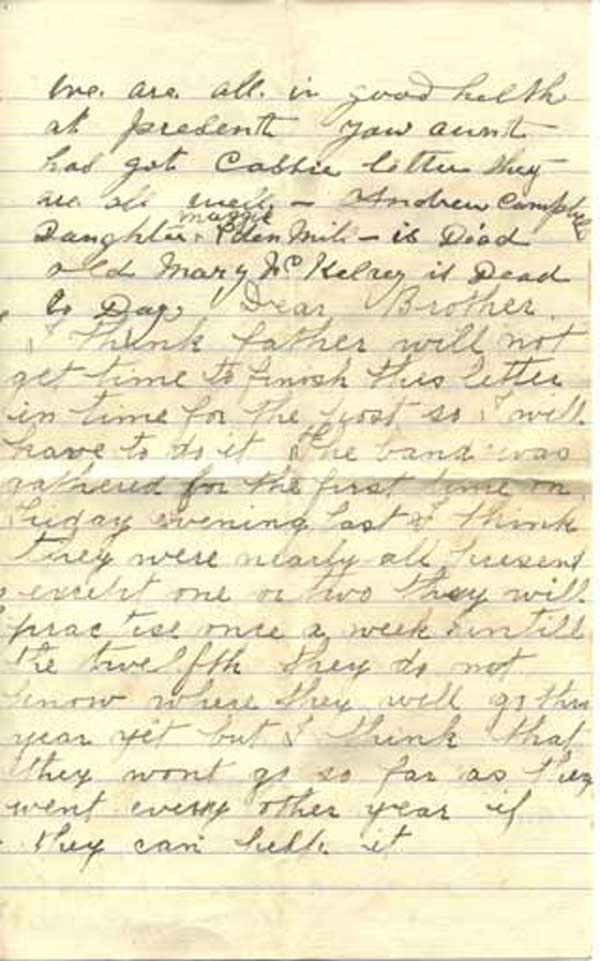 We. are. all. in good helth
at present yaw aunt
has got Cassie letter they
are all well. – Andrew Campbell
maggie
Daughter Eden Mill – is Dead
old Mary Mc Kelvey is Dead
to Day, Dear Brother.
I think father will not
get time to finosh this letter
in time for the post so I will
have to do it The band was
gathered for the first time on
Friday evening last I think
they were nearly all present
except one or two they will
practise once a week untill
the twelfth they do not
know where they will go this
year yet but I think that
they wont go so far as they
went every other year if
they can help it